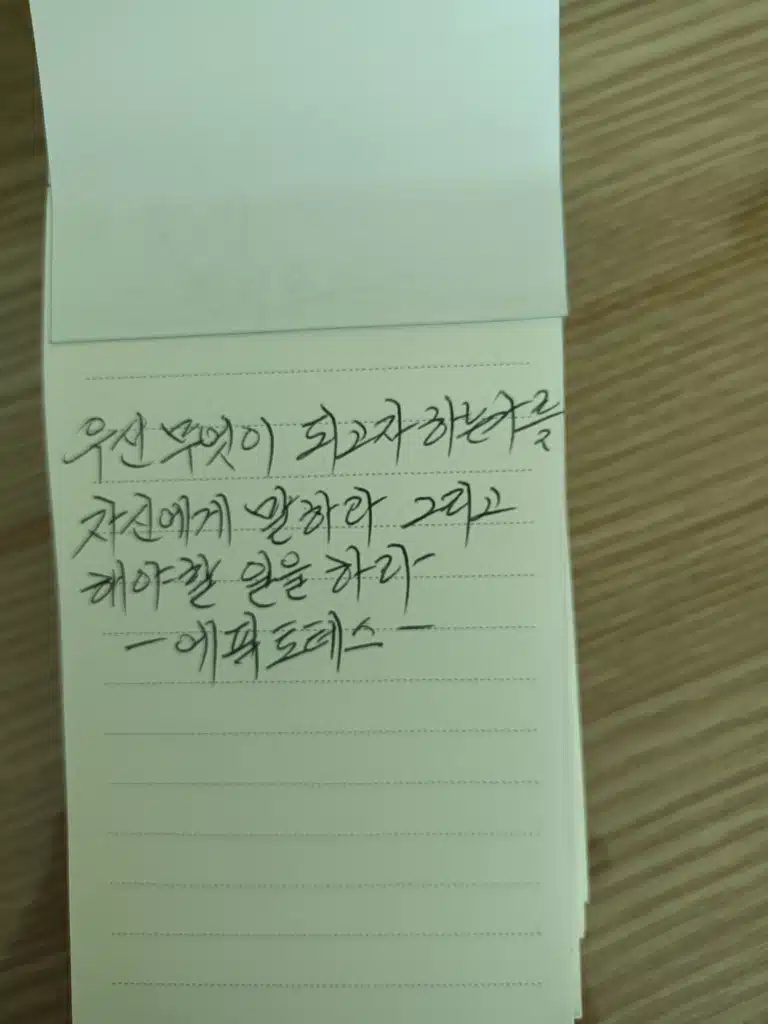 우선 무엇이 되고자 하는가를
자신에게 말하라 그리고
해야할 일을 하라
- 에픽토테스 -